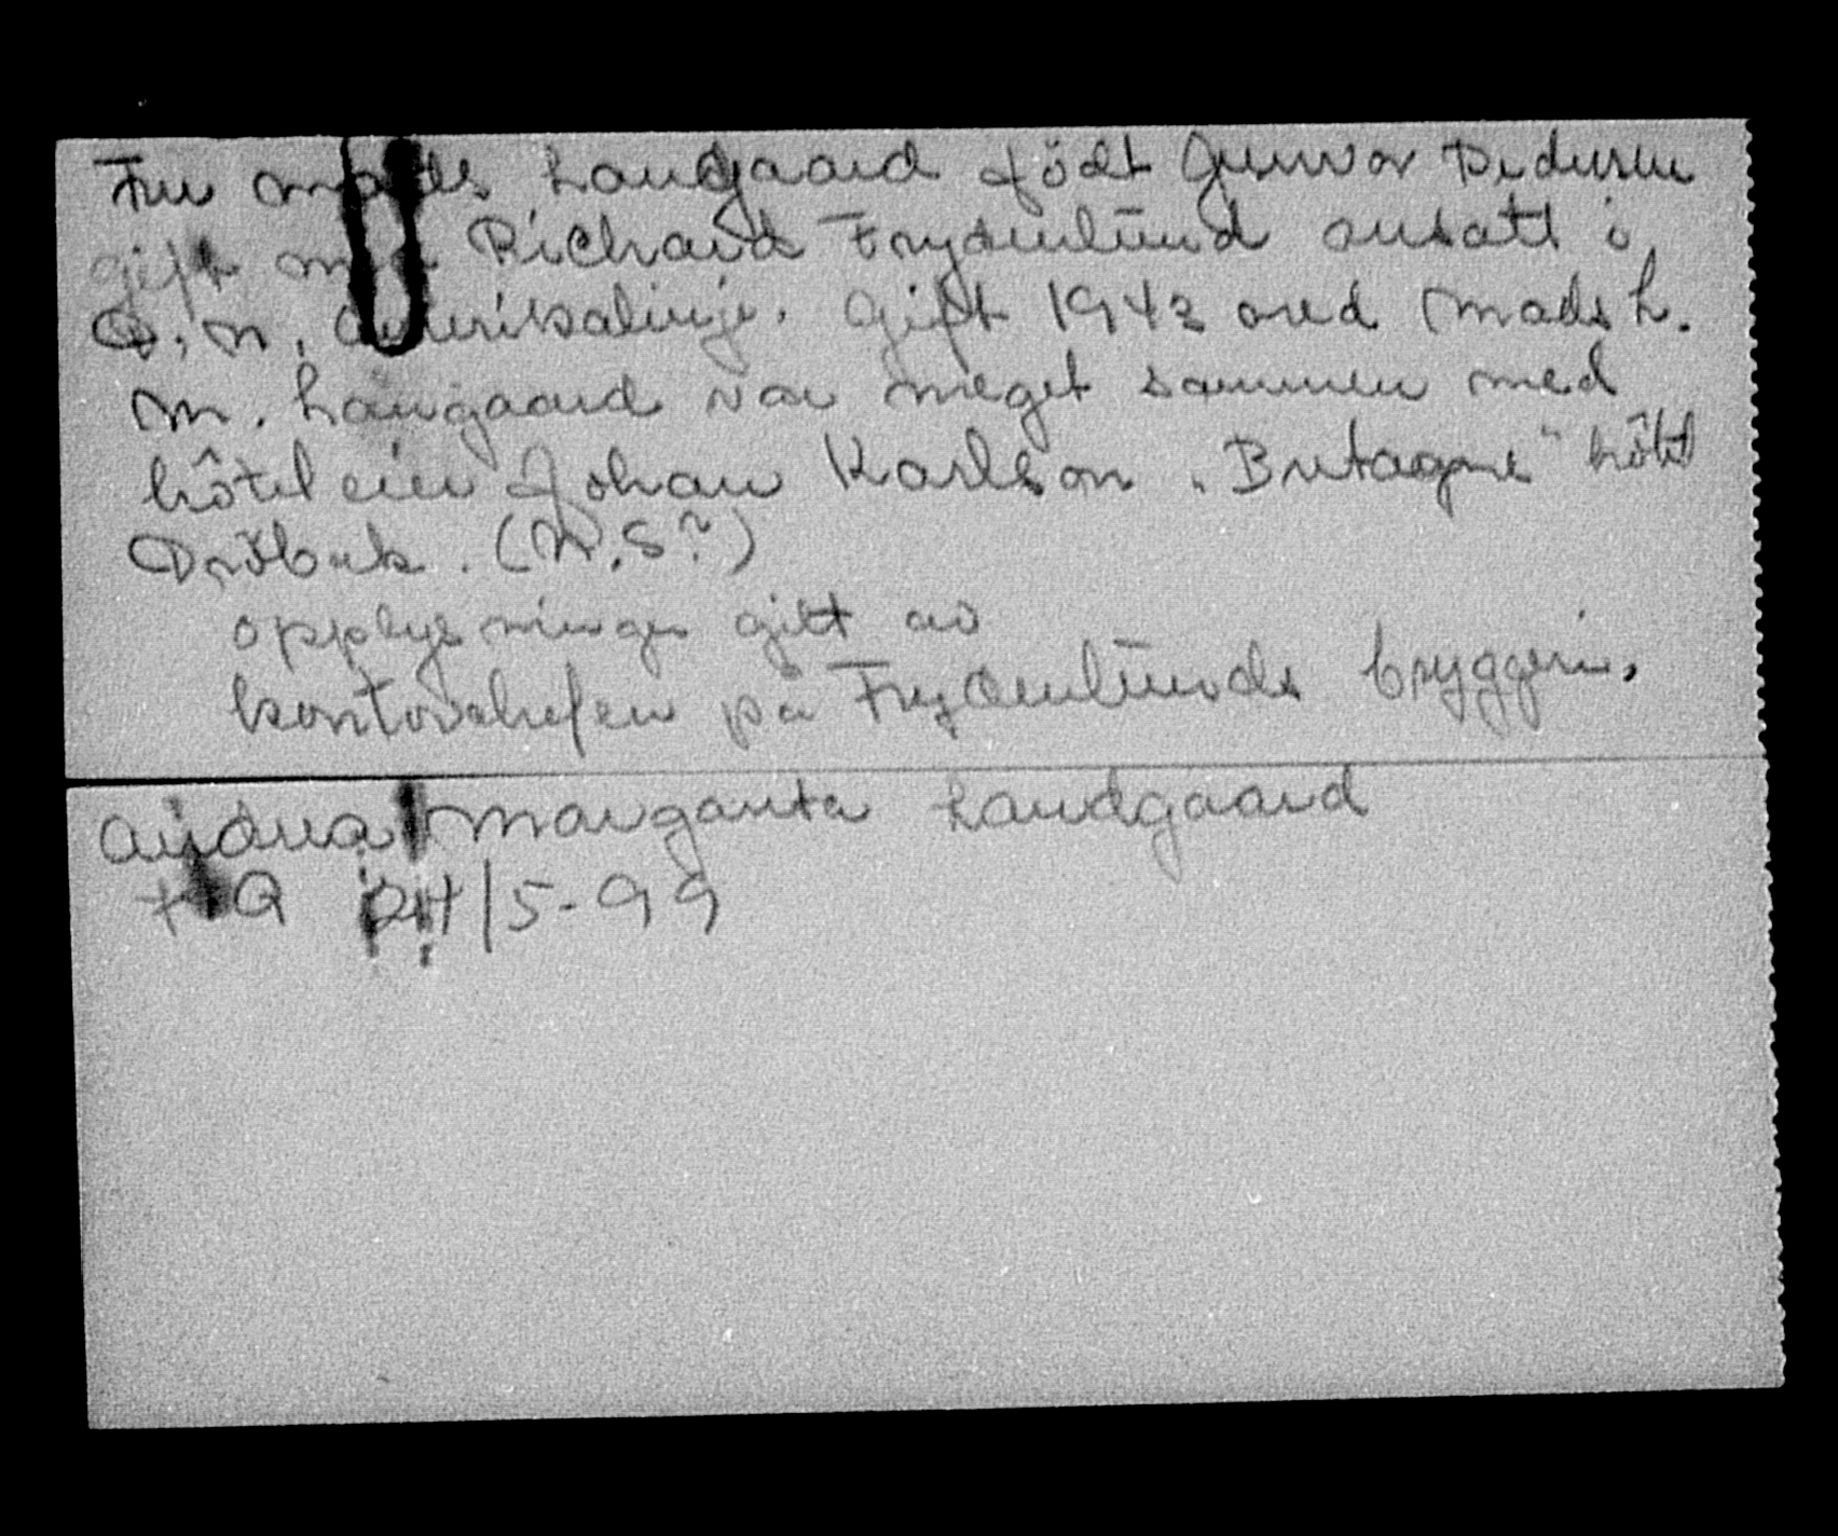 Fru Mads Langaard födt Gunvor Pedersen
gift med Richard Frydenlund ansatt i
D.N. Amerikalinje. Gift 1943 med Mads L.
M. Langaard var meget sammen med
hôteleier Johan Karlson „Bretagne" hôtel
Dröbak. (N.S?)
opplysninger gitt av
kontorchefen på Frydenlunds bryggeri.
Andrea Margareta Landgaard
24/5-99